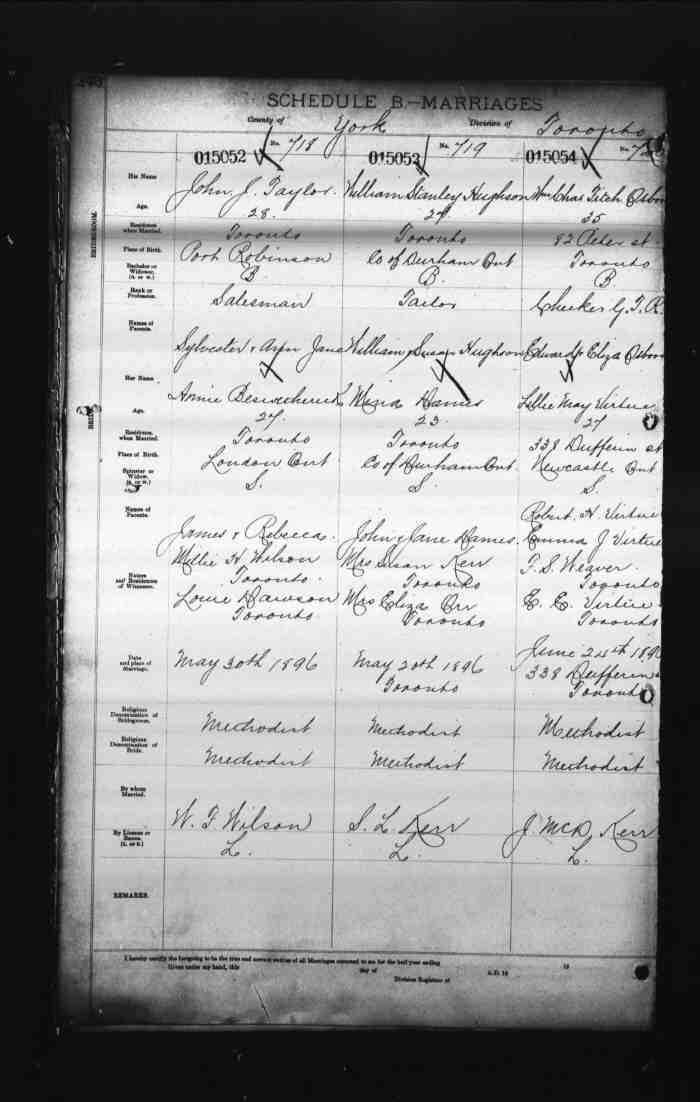 SCHEDULE B.—MARRIAGES
County of York Division of Toronto
015052 No. 718 015053 No. 719 015054 No.
BRIDEGROOM.
His Name John J. Taylor William Stanley Hughson Wm Chas Fitch
Age. 28 35
Residence when Married. Toronto Toronto 82 Peter st
Place of Birth. Port Robinson Co of Durham Ont Toronto
Bachelor or Widower. (B. or W.) B. B. B
Rank or Profession. Salesman Tailor Checker G.T.R.
Names of Parents. Sylvester & Jane William & Susan Hughson Edward & Eliza
BRIDE.
Her Name Annie Beswetherick Hames Lillie May Virtue
Age. 27 23 27
Residence when Married. Toronto Toronto 338 Dufferin st
Place of Birth. London Ont Co of Durham Ont Newcastle Ont
Spinster or Widow. (S. or W.) S. S. S.
Names of Parents. James & Rebecca. John & Jane Hames Robert H. Virtue
Emma J Virtue
Names and Residences of Witnesses. Millie H. Wilson Mrs Susan Kerr T. S. Weaver
Toronto Toronto Toronto
Louie Dawson Mrs Eliza Orr E. E. Virtue
Toronto Toronto Toronto
Date and place of Marriage. May 30th 1896 May 20th 1896 June 24th
Toronto 338 Dufferin
Toronto
Religious Denomination of Bridegroom. Methodist Methodist Methodist
Religious Denomination of Bride. Methodist Methodist Methodist
By whom Married. W. F. Wilson S. L. Kerr J. McD Kerr
By License or Banns. (L. or B.) L. L. L.
REMARKS.
I hereby certify the foregoing to be the true and correct entries of all Marriages returned to me for the half year ending
Given under my hand, this day of A.D. 18
Division Registrar of